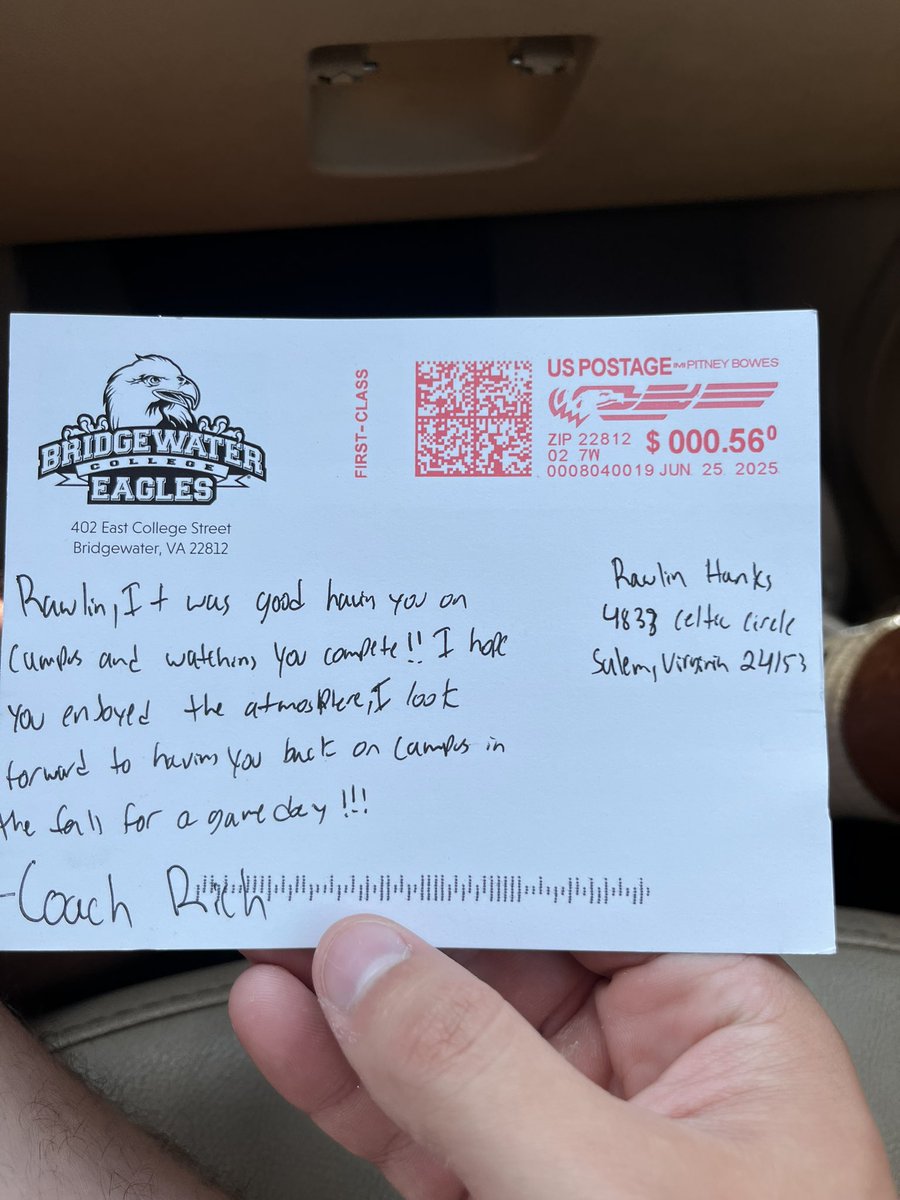 BRIDGEWATER
COLLEGE
EAGLES
402 East College Street
Bridgewater, VA 22812
FIRST-CLASS
US POSTAGE IMI PITNEY BOWES
ZIP 22812
02 7W
$ 000.56⁰
0008040019 JUN 25 2025
Rawlin Hanks
4833 Celtic Circle
Salem, Virginia 24153
Rawlin, It was good havin you on
campus and watching you compete!! I hope
you enjoyed the atmosphere, I look
forward to having you back on campus in
the fall for a game day!!!
-Coach Rich